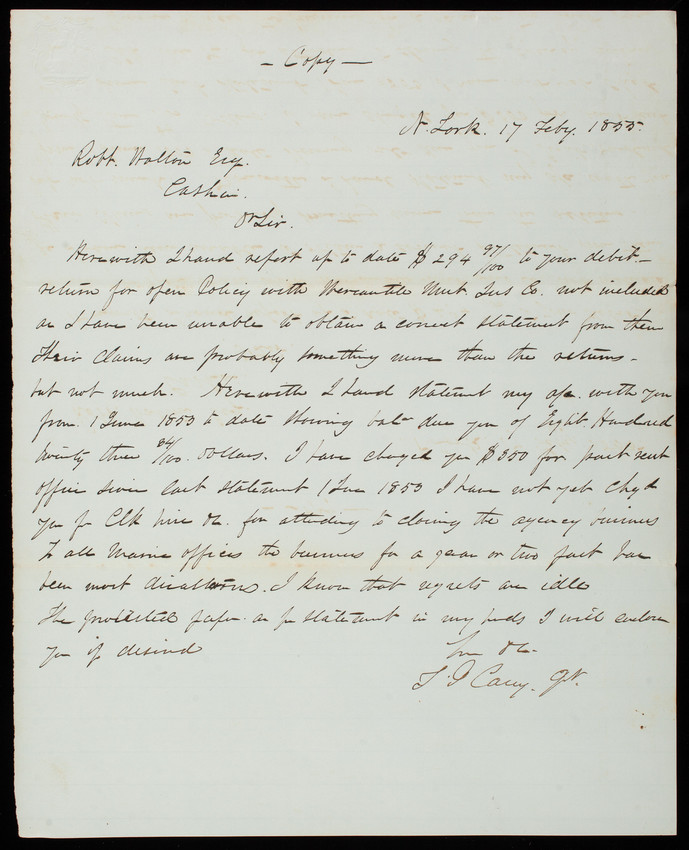 - Copy -
N. York. 17 Feby. 1855.
Robt. Walton Esq.
Cashr.
Dr Sir.
Herewith I hand report up to date $294 97/100 to your debit. -
return for open Policy with Mercantile Mut. Ins Co. not included
as I have been unable to obtain a correct statement from them
Their claims are probably something more than the returns -
but not much. Herewith I hand statement my a/c. with you
from 1 June 1853 to date showing bale due you of Eight Hundred
twenty three 84/100. Dollars. I have charged you $350 for part rent
office since last statement 1 June 1853 I have not yet Chgd
you for Clk hire &c. for attending to closing the agency business
To all Marine offices the business for a year or two past has
been most disastrous. I know that regrets are idle
The protested paper as pr statement in my hands I will enclose
you if desired
&c.
Carey.